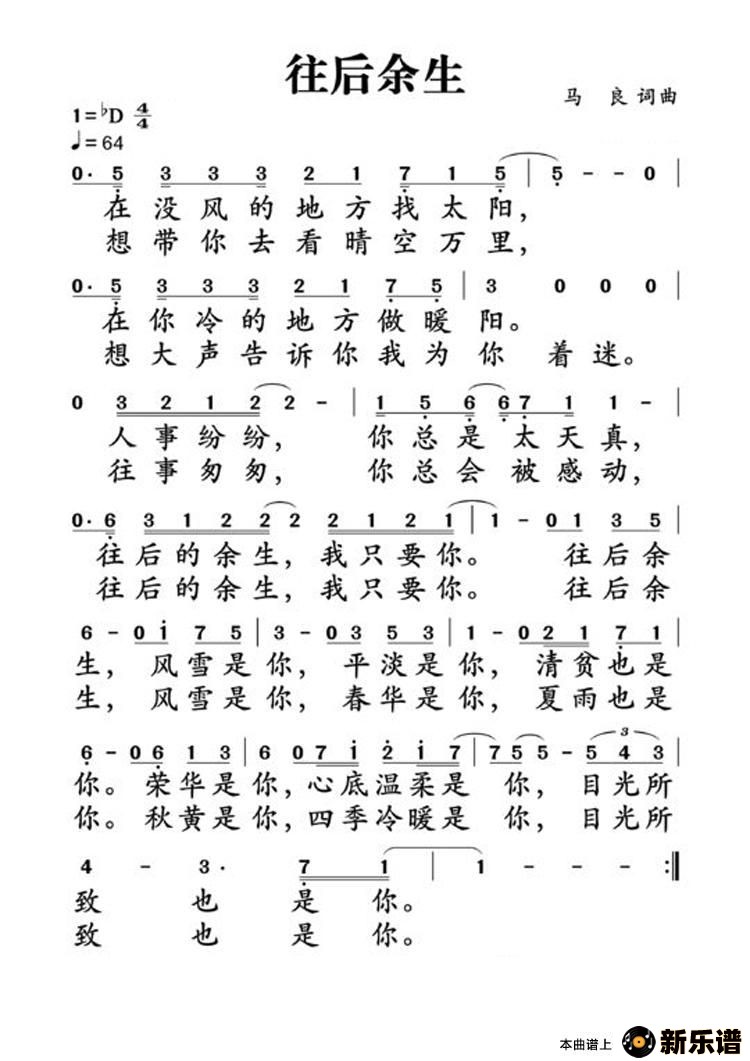 往后余生
马 良 词曲
1=♭D 4/4
♩=64
0· 5 3 3 3 2 1 7 1 5 | 5 - - 0 |
在没风的地方找太阳，
想带你去看晴空万里，
0· 5 3 3 3 2 1 7 5 | 3 0 0 0 |
在你冷的地方做暖阳。
想大声告诉你我为你着迷。
0 3 2 1 2 2 - | 1 5 6 6 7 1 1 - |
人事纷纷， 你总是太天真，
往事匆匆， 你总会被感动，
0· 6 3 1 2 2 2 2 1 2 1 | 1 - 0 1 3 5 |
往后的余生，我只要你。 往后余
往后的余生，我只要你。 往后余
6 - 0 i 7 5 | 3 - 0 3 5 3 | 1 - 0 2 1 7 1 |
生， 风雪是你，平淡是你，清贫也是
生， 风雪是你，春华是你，夏雨也是
6 - 0 6 1 3 | 6 0 7 i 2 i 7 | 7 5 5 - 5 4 3 |
3
你。荣华是你，心底温柔是 你，目光所
你。秋黄是你，四季冷暖是 你，目光所
4 - 3· 7 1 | 1 - - - :||
致 也 是 你。
致 也 是 你。
本曲谱上 新乐谱